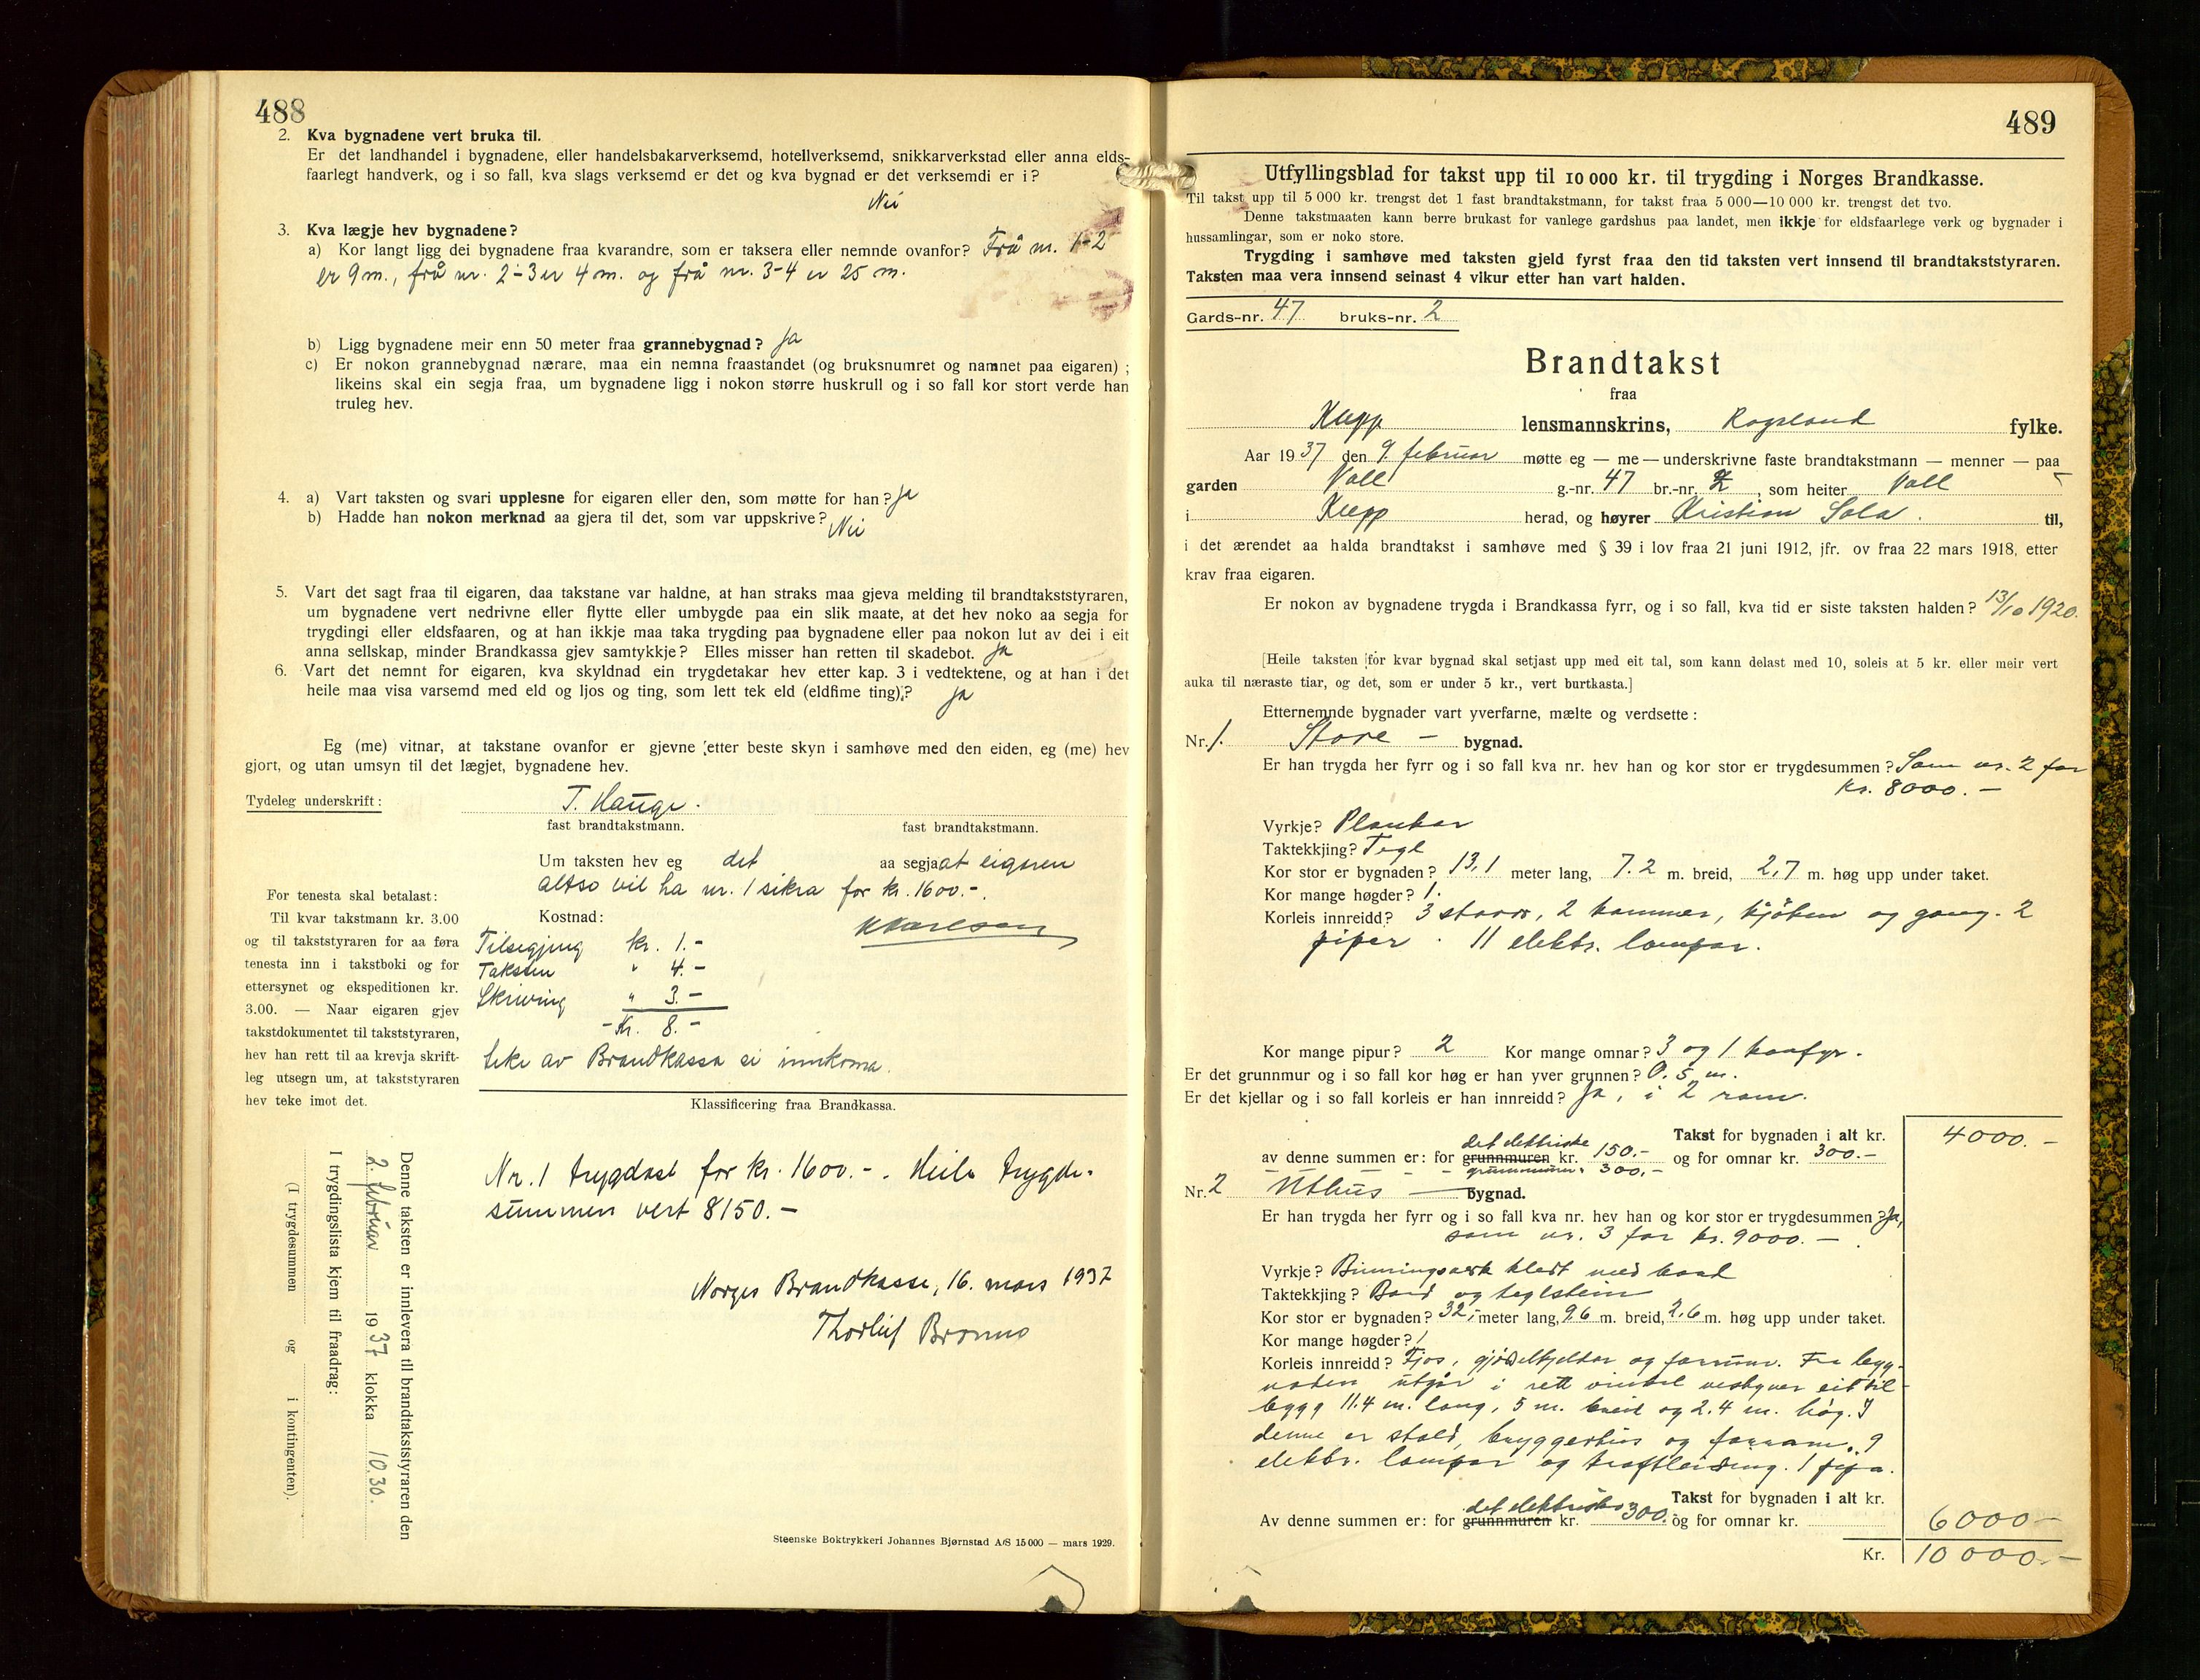 488
2. Kva bygnadene vert bruka til.
Er det landhandel i bygnadene, eller handelsbakarverksemd, hotellverksemd, snikkarverkstad eller anna elds-
faarlegt handverk, og i so fall, kva slags verksemd er det og kva bygnad er det verksemdi er i?
Nei
3. Kva lægje hev bygnadene?
a) Kor langt ligg dei bygnadene fraa kvarandre, som er taksera eller nemnde ovanfor? Frå nr. 1-2
er 9 m., frå nr. 2-3 er 4 m. og frå nr. 3-4 er 25 m.
b) Ligg bygnadene meir enn 50 meter fraa grannebygnad? Ja
c) Er nokon grannebygnad nærare, maa ein nemna fraastandet (og bruksnumret og namnet paa eigaren) ;
likeins skal ein segja fraa, um bygnadene ligg i nokon større huskrull og i so fall kor stort verde han
truleg hev.
4. a) Vart taksten og svari upplesne for eigaren eller den, som møtte for han? Ja
b) Hadde han nokon merknad aa gjera til det, som var uppskrive? Nei
5. Vart det sagt fraa til eigaren, daa takstane var haldne, at han straks maa gjeva melding til brandtakststyraren,
um bygnadene vert nedrivne eller flytte eller umbygde paa ein slik maate, at det hev noko aa segja for
trygdingi eller eldsfaaren, og at han ikkje maa taka trygding paa bygnadene eller paa nokon lut av dei i eit
anna sellskap, minder Brandkassa gjev samtykkje? Elles misser han retten til skadebot. Ja
6. Vart det nemnt for eigaren, kva skyldnad ein trygdetakar hev etter kap. 3 i vedtektene, og at han i det
heile maa visa varsemd med eld og ljos og ting, som lett tek eld (eldfime ting)? Ja
Eg (me) vitnar, at takstane ovanfor er gjevne etter beste skyn i samhøve med den eiden, eg (me) hev
gjort, og utan umsyn til det lægjet, bygnadene hev.
Tydeleg underskrift: T. Hauge.
fast brandtakstmann. fast brandtakstmann.
Um taksten hev eg det aa segja at eigaren
altso vil ha nr. 1 sikra for kr. 1600.-.
Kostnad:
Tilsegjing kr. 1.-
Taksten " 4.-
Skriving " 3.-
Kr. 8.-
For tenesta skal betalast:
Til kvar takstmann kr. 3.00
og til takststyraren for aa føra
tenesta inn i takstboki og for
ettersynet og ekspeditionen kr.
3.00. — Naar eigaren gjev
takstdokumentet til takststyraren,
hev han rett til aa krevja skrift-
leg utsegn um, at takststyraren
hev teke imot det.
av Brandkassa ei innkoma.
Klassificering fraa Brandkassa.
Nr. 1 trygdast for kr. 1600.-. Heile trygde-
summen vert 8150.-
Norges Brandkasse, 16. mars 1937
Denne taksten er innlevera til brandtakststyraren den
2. februar 1937 klokka 10.30.
I trygdingslista kjem til fraadrag:
(I trygdesummen og i kontingenten).
Steenske Boktrykkeri Johannes Bjørnstad A/S 15 000 — mars 1929.
489
Utfyllingsblad for takst upp til 10 000 kr. til trygding i Norges Brandkasse.
Til takst upp til 5 000 kr. trengst det 1 fast brandtakstmann, for takst fraa 5 000—10 000 kr. trengst det tvo.
Denne takstmaaten kann berre brukast for vanlege gardshus paa landet, men ikkje for eldsfaarlege verk og bygnader i
hussamlingar, som er noko store.
Trygding i samhøve med taksten gjeld fyrst fraa den tid taksten vert innsend til brandtakststyraren.
Taksten maa vera innsend seinast 4 vikur etter han vart halden.
Gards-nr. 47 bruks-nr. 2
Brandtakst
fraa
Klepp lensmannskrins, Rogaland fylke.
Aar 1937 den 9. februar møtte eg — me — underskrivne faste brandtakstmann — menner — paa
garden Voll g.-nr. 47 br.-nr. 2, som heiter Voll
i Klepp herad, og høyrer Kristian Sola. til,
i det ærendet aa halda brandtakst i samhøve med § 39 i lov fraa 21 juni 1912, jfr. ov fraa 22 mars 1918, etter
krav fraa eigaren.
Er nokon av bygnadene trygda i Brandkassa fyrr, og i so fall, kva tid er siste taksten halden? 13/10 1920.
[Heile taksten for kvar bygnad skal setjast upp med eit tal, som kann delast med 10, soleis at 5 kr. eller meir vert
auka til næraste tiar, og det, som er under 5 kr., vert burtkasta.]
Etternemnde bygnader vart yverfarne, mælte og verdsette :
Nr. 1. Store - bygnad.
Er han trygda her fyrr og i so fall kva nr. hev han og kor stor er trygdesummen? Som nr. 2 for
kr. 8000.-
Vyrkje? Plankar
Taktekkjing? Tegl
Kor stor er bygnaden? 13,1 meter lang, 7.2 m. breid, 2,7 m. høg upp under taket.
Kor mange høgder? 1.
Korleis innreidd? 3 stovor, 2 kammer, kjøken og gang. 2
piper. 11 elektr. lampar.
Kor mange pipur? 2 Kor mange omnar? 3 og 1 komfyr.
Er det grunnmur og i so fall kor høg er han yver grunnen? 0.5 m.
Er det kjellar og i so fall korleis er han innreidd? Ja, i 2 rom.
Takst for bygnaden i alt kr. 4000.-
av denne summen er: for grunnmuren det elektriske kr. 150.- og for omnar kr. 300.-
- - - - grunnmuren 300,-
Nr. 2 Uthus bygnad.
Er han trygda her fyrr og i so fall kva nr. hev han og kor stor er trygdesummen? Ja,
som nr. 3 for kr. 9000.-
Vyrkje? Binningsverk kledt med bord
Taktekkjing? Bord og teglstein
Kor stor er bygnaden? 32,- meter lang, 9,6 m. breid, 2,6 m. høg upp under taket.
Kor mange høgder? 1
Korleis innreidd? Fjos, gjødselkjeldar og forrum. Fra bygg-
naden utgår i rett vinkel vestyver eit til-
bygg 11.4 m. lang, 5 m. breid og 2.4 m. høg. I
denne er stald, bryggerhus og forrom. 9
elektr. lampar og kraftleidning. 1 pipa.
Takst for bygnaden i alt kr.
Av denne summen er: for grunnmuren det elektriske kr. 300. og for omnar kr. 6000-
Kr. 10 000.-